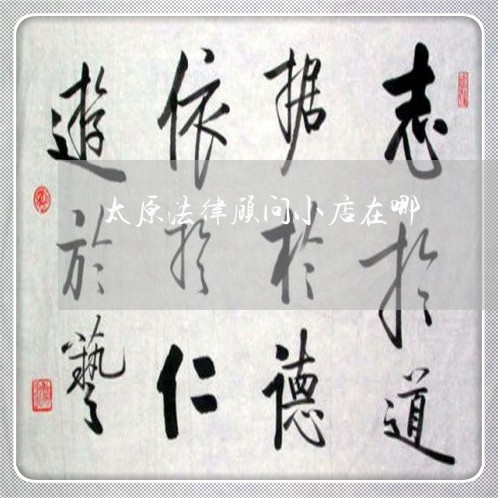 志於道
据於德
依於仁
遊於藝
太原法律顾问小店在哪